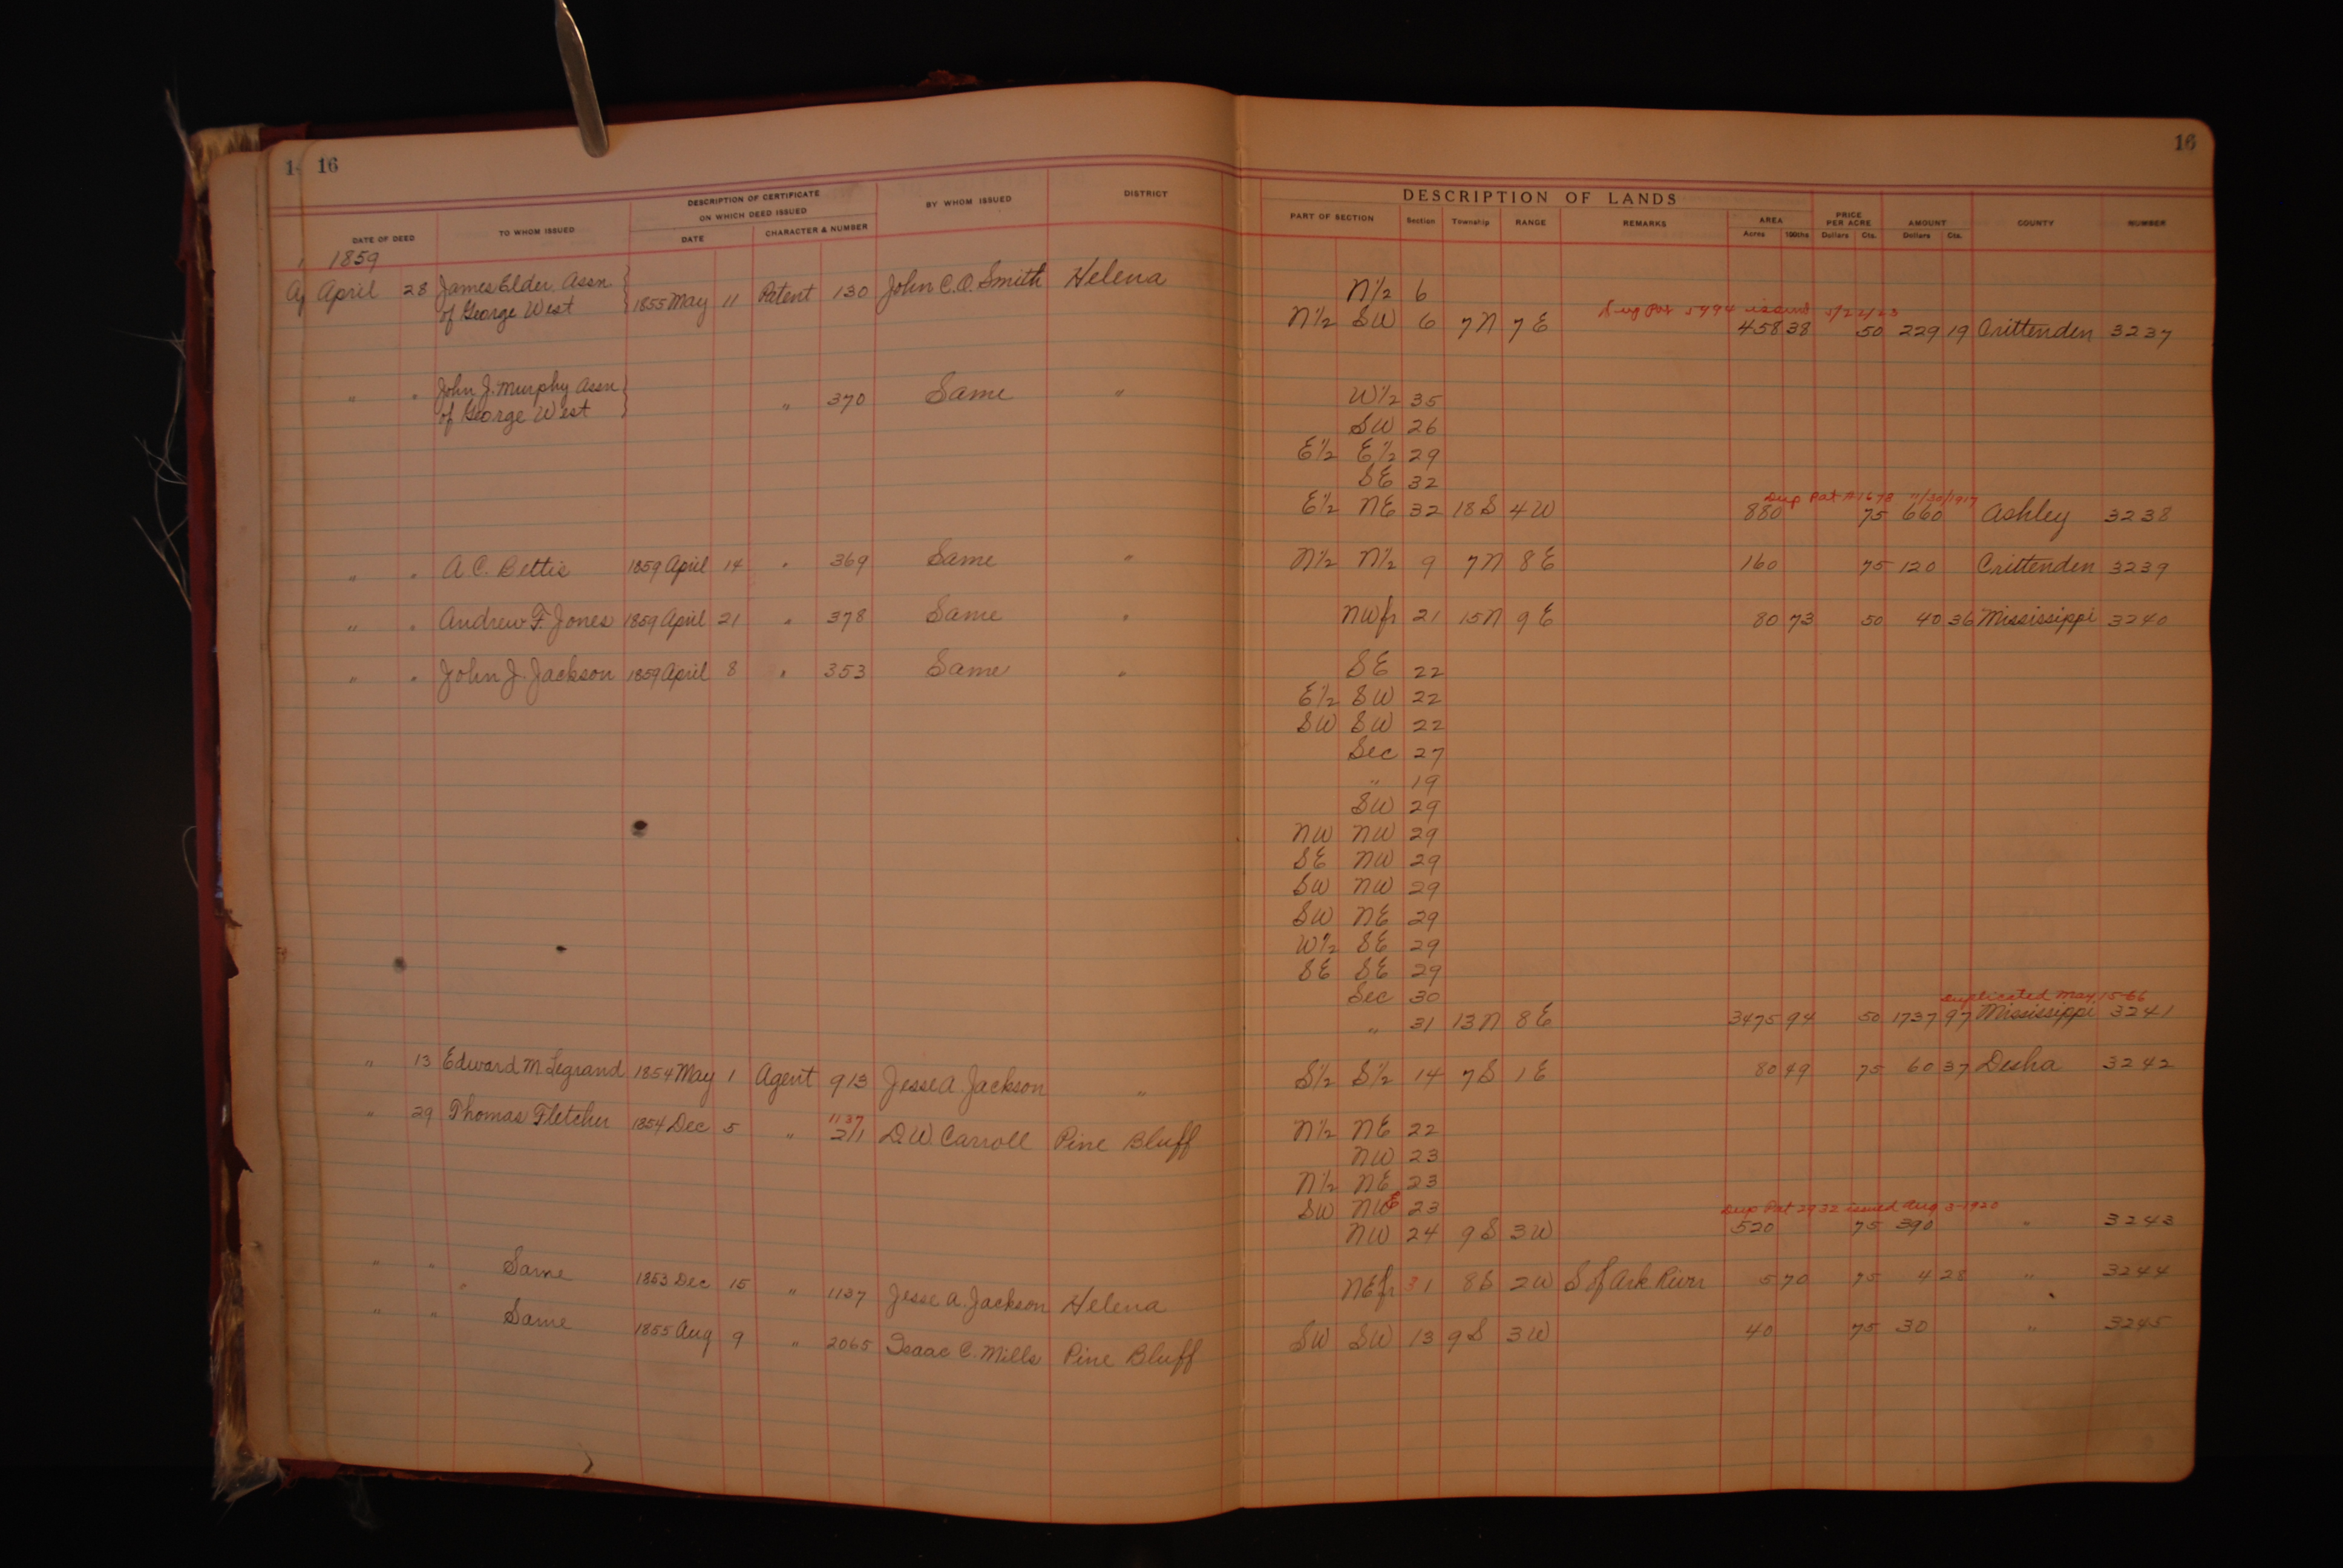 16 16
DESCRIPTION OF LANDS
DESCRIPTION OF CERTIFICATE
ON WHICH DEED ISSUED
DATE OF DEED TO WHOM ISSUED DATE CHARACTER & NUMBER BY WHOM ISSUED DISTRICT PART OF SECTION Section Township RANGE REMARKS AREA PRICE PER ACRE AMOUNT COUNTY NUMBER
Acres 100ths Dollars Cts. Dollars Cts.
1859
April 28 James Elder Assn 1855 May 11 Patent 130 John C. O. Smith Helena N 1/2 6
of George West N 1/2 SW 6 7N 7E 458 38 50 229 19 Crittenden 3237
Dup Pat 5494 issued
" " John J. Murphy Assn " 370 Same " W 1/2 35
of George West SW 26
E 1/2 E 1/2 29
SE 32
Dup Pat #1678 11/30/1917
E 1/2 NE 32 18S 4W 880 75 660 Ashley 3238
" " A. C. Bettis 1859 April 14 " 369 Same " N 1/2 N 1/2 9 7N 8E 160 75 120 Crittenden 3239
" " Andrew F. Jones 1859 April 21 " 378 Same " NW fr 21 15N 9E 80 73 50 40 36 Mississippi 3240
" " John J. Jackson 1859 April 8 " 353 Same " SE 22
E 1/2 SW 22
SW SW 22
Sec 27
" 19
SW 29
NW NW 29
SE NW 29
SW NW 29
SW NE 29
W 1/2 SE 29
SE SE 29
Sec 30
Duplicated May 15-66
" 31 13N 8E 3475 94 50 1737 97 Mississippi 3241
" 13 Edward M Legrand 1854 May 1 Agent 913 Jesse A. Jackson " S 1/2 S 1/2 14 7S 1E 80 49 75 60 37 Desha 3242
1137
" 29 Thomas Fletcher 1854 Dec 5 " 211 D. W. Carroll Pine Bluff N 1/2 NE 22
NW 23
N 1/2 NE 23
SW NWE 23
Dup Pat 2932 issued Aug 3-1920
NW 24 9S 3W 520 75 390 " 3243
" " Same 1853 Dec 15 " 1137 Jesse A. Jackson Helena NE fr 31 8S 2W S of Ark River 5 70 75 4 28 " 3244
" " Same 1855 Aug 9 " 2065 Isaac C. Mills Pine Bluff SW SW 13 9S 3W 40 75 30 " 3245